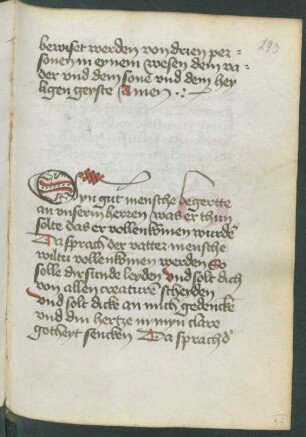 293
bewiset werden von drien per=
sonen in eynem wesen dem va=
der vnd dem sone vnd dem hey
ligen geyste Amen
Eyn gut mensche begertte
an vnsern herren was er thun
solte das er vollenkomen wurde
Da sprach der vatter mensche
wiltu vollenkomen werden So
solle dir sunde leyden vnd solt dich
von allen creaturē scheyden
Vnd solt dicke an mich gedencke
vnd din hertze in myn clare
gotheyt sencken Da sprach d'